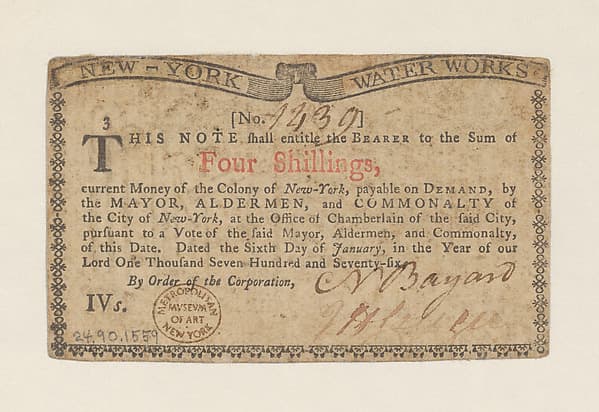 NEW-YORK WATER WORKS
[No. 1439]
3
THIS NOTE ſhall entitle the BEARER to the Sum of
Four Shillings,
current Money of the Colony of New-York, payable on DEMAND, by
the MAYOR, ALDERMEN, and COMMONALTY of
the City of New-York, at the Office of Chamberlain of the ſaid City,
purſuant to a Vote of the ſaid Mayor, Aldermen, and Commonalty,
of this Date. Dated the Sixth Day of January, in the Year of our
Lord One Thouſand Seven Hundred and Seventy-ſix.
By Order of the Corporation,
N Bayard
IVs.
METROPOLITAN
MVSEVM
OF ART
NEW YORK
24.90.1559